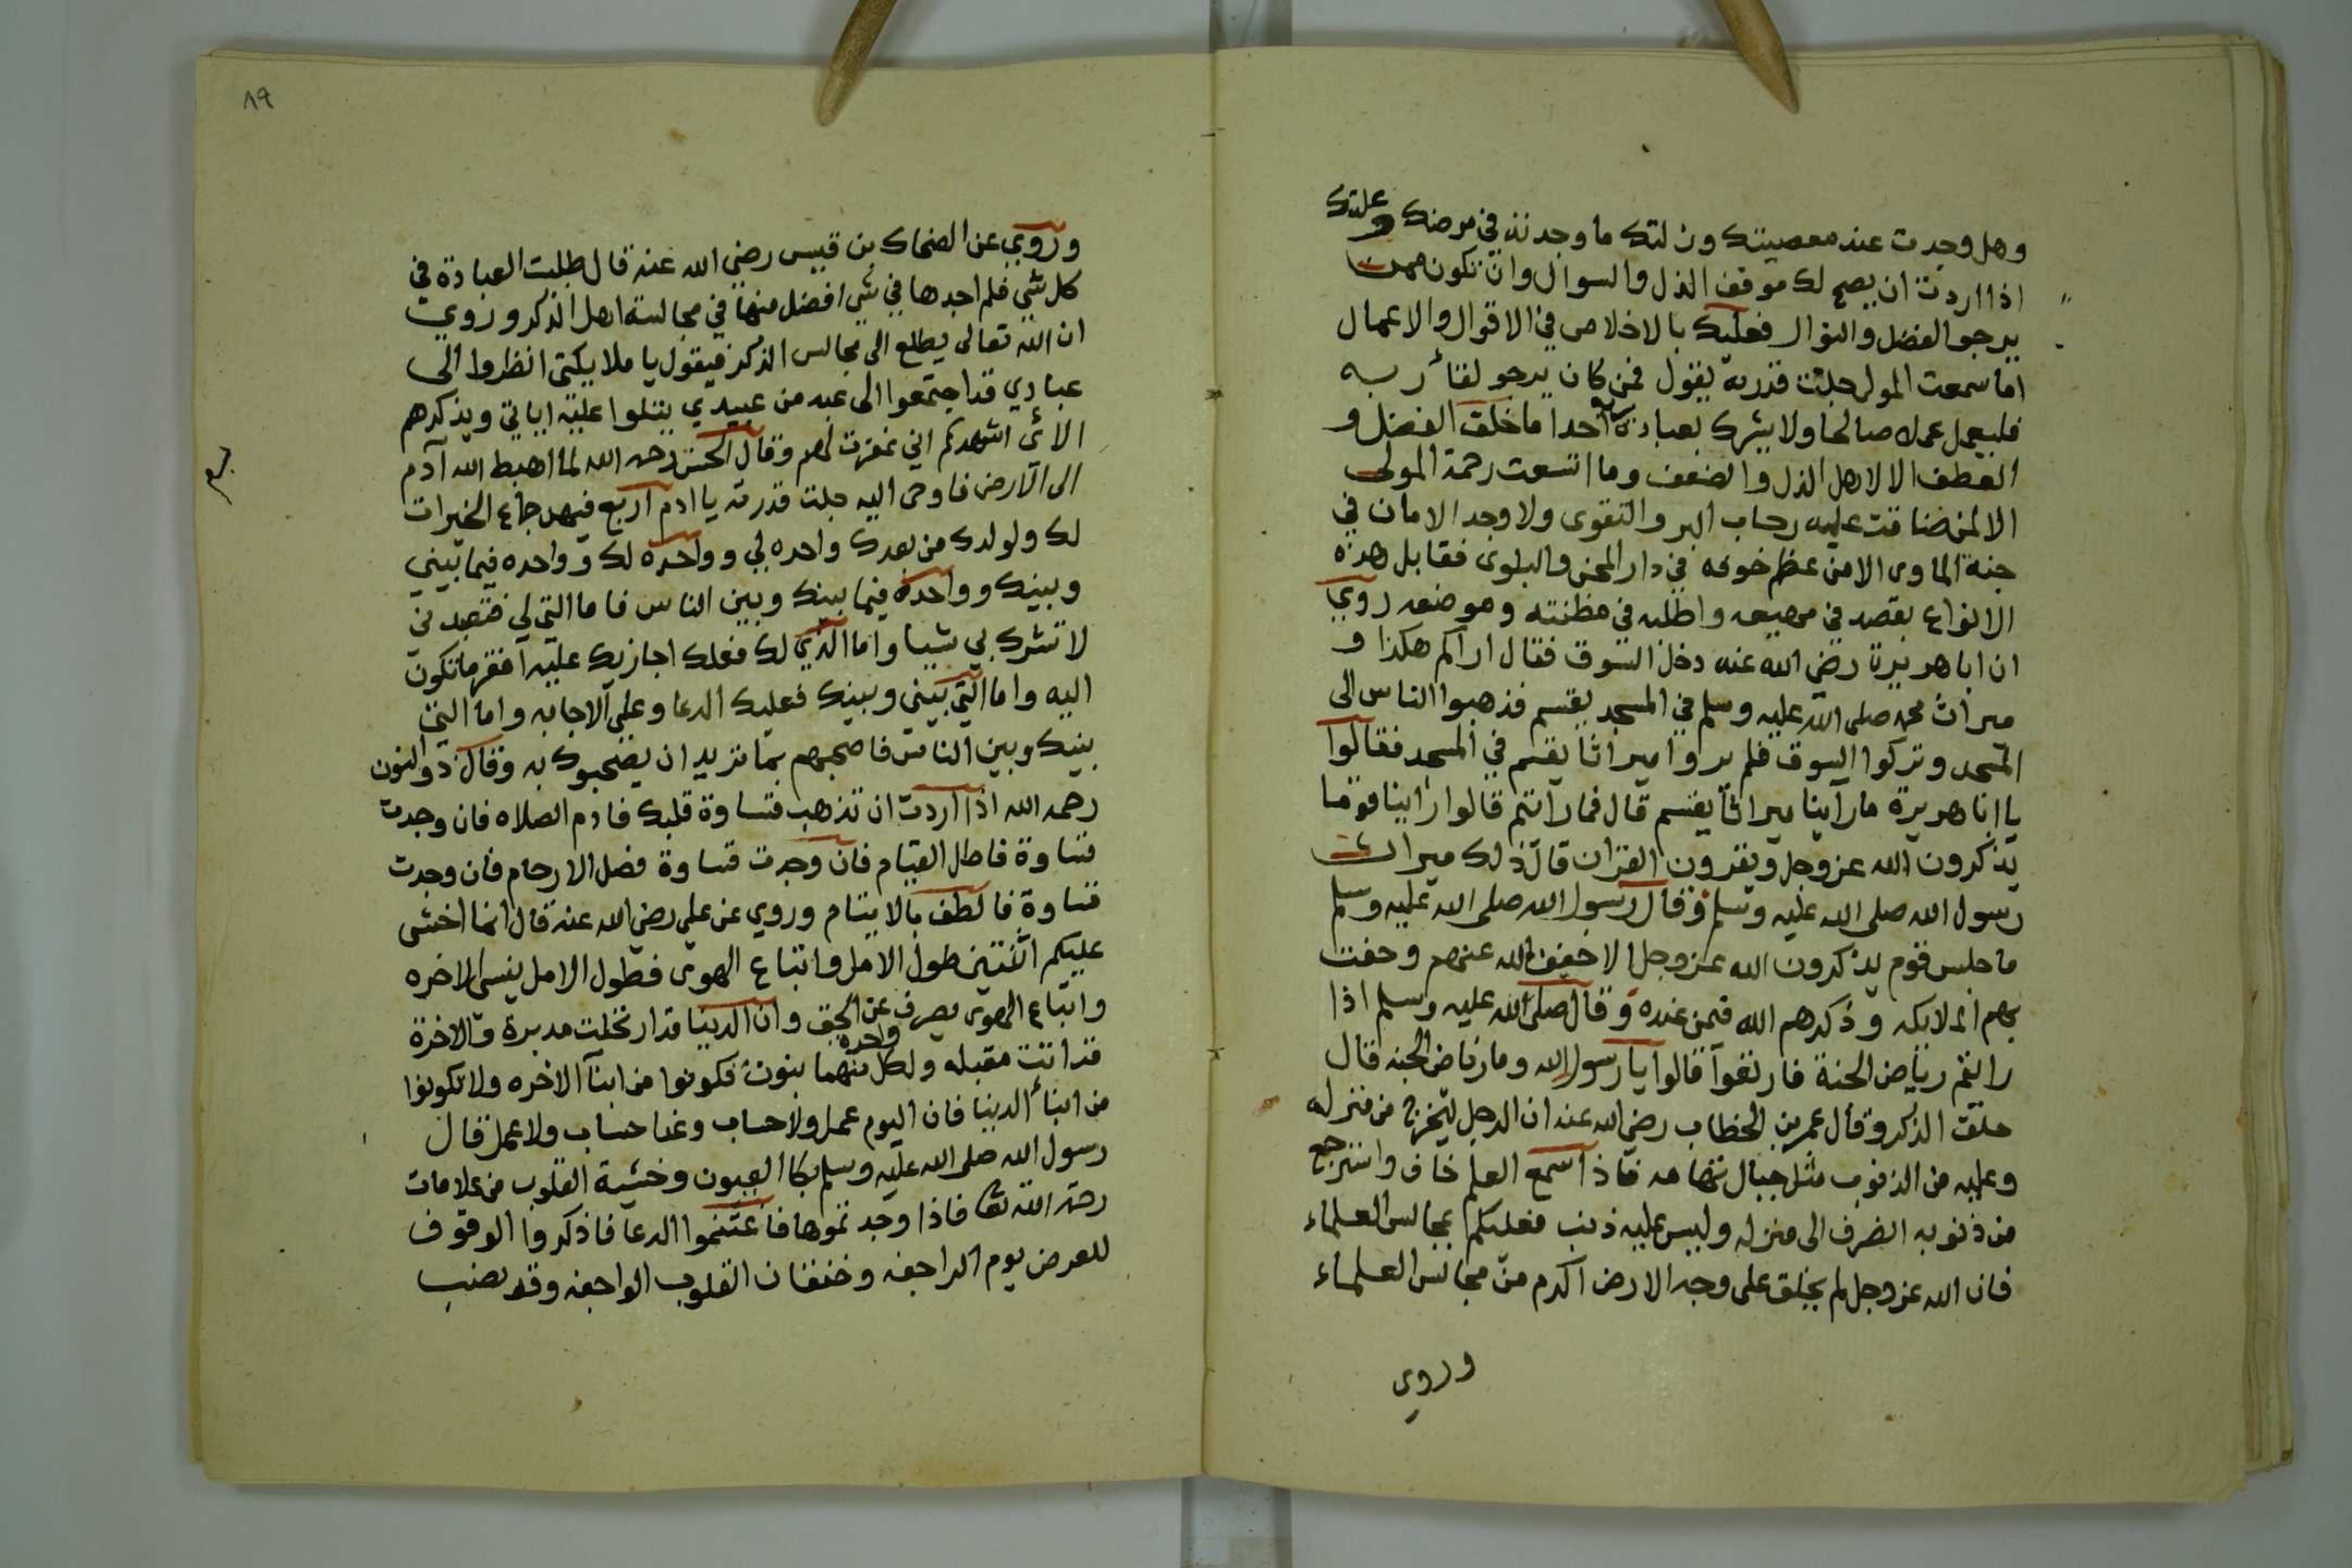 وهل وجدت عند معصيتك وزلتك ما وجدته في مرضك وعلتك
اذا اردت ان يصح لك موقف الذل والسوال وان تكون ممن
يرجو الفضل والنوال فعليك بالاخلاص في الاقوال والاعمال
اما سمعت المولى جلت قدرته يقول فمن كان يرجو لقاء ربه
فليعمل عملا صالحا ولا يشرك بعبادة ربه احدا ما خلق الفضل و
العطف الا لاهل الذل والضعف وما اتسعت رحمة المولى
الا لمن ضاقت عليه رحاب البر والتقوى ولا وجد الامان في
جنة الماوى الا من عظم خوفه في دار المحن والبلوى فقابل هذه
الانواع بقصد في واطلبه في مظنته وموضعه روي
ان ابا هريرة رضي الله عنه دخل السوق فقال اراكم هكذا و
ميراث محمد صلى الله عليه وسلم في المسجد يقسم فذهبوا الناس الى
المسجد وتركوا السوق فلم يروا ميراثا يقسم في المسجد فقالوا
يا ابا هريرة ما رآينا ميراثا يقسم قال فما رآتيم قالوا رآينا قوما
يذكرون الله عز وجل ويقرون القرآن قال ذلك ميراث
رسول الله صلى الله عليه وسلم وقال رسول الله صلى الله عليه وسلم
ما جلس قوم يذكرون الله عز وجل الا خفف الله عنهم وحفت
بهم الملايكه وذكرهم الله فيمن عنده وقال صلى الله عليه وسلم اذا
رايتم رياض الجنة فارتقوا قالوا يا رسول الله وما رياض الجنه قال
حلق الذكر وقال عمر بن الخطاب رضي الله عنه ان الرجل ليخرج من منزله
وعليه من الذنوب مثل جبال تهامه فاذا سمع العلم خاف واسترجع
من ذنوبه انصرف الى منزله وليس عليه ذنب فعليكم بمجالس العلماء
فان الله عز وجل لم يخلق على وجه الارض اكرم من مجالس العلماء
وروي
١٩
وروي عن الضحاك بن قيس رضي الله عنه قال طلبت العبادة في
كل شي فلم اجدها في شي افضل منها في مجالسة اهل الذكر وروي
ان الله تعالى يطلع الى مجالس الذكر فيقول يا ملايكتي انظروا الى
عبادي قد اجتمعوا الى عبد من عبيدي يتلوا عليه اياتي ويذكرهم
الائ اشهدكم اني غفرت لهم وقال الحسن رحمه الله لما اهبط الله آدم
الى الارض فاوحى اليه جلت قدرته يا ادم اربع فيهن جماع الخيرات
لك ولولدك من بعدك واحده لي وواحده لك وواحده فيما بيني
وبينك وواحدة فيما بينك وبين الناس فاما التي لي
لا تشرك بي شيا واما الذي لك فعلك اجازيك عليه افقر ما تكون
اليه واما التي بيني وبينك فعليك الدعا وعلي الاجابه واما التي
بينك وبين الناس فاصحبهم بما تريد ان يصحبوك به وقال ذو النون
رحمه الله اذا اردت ان تذهب قساوة قلبك فادم الصلاه فان وجدت
قساوة فاطل القيام فان وجدت قساوة فصل الارحام فان وجدت
قساوة فالطف بالايتام وروي عن علي رضي الله عنه قال انما اخشى
عليكم اثنتين طول الامل واتباع الهوى فطول الامل ينسى الاخره
واتباع الهوى يصرف عن الحق وان الدنيا قد ارتحلت مدبرة والاخرة
قد اتت مقبله ولكل واحدة منهما بنون فكونوا من ابنآ الاخره ولا تكونوا
من ابناء الدنيا فان اليوم عمل ولا حساب وغدا حساب ولا عمل قال
رسول الله صلى الله عليه وسلم بكا العيون وخشية القلوب من علامات
رحمة الله تعا فاذا وجدتموها فاغتنموا الدعا فاذكروا الوقوف
للعرض يوم الراجفه وخفقان القلوب الواجفه وقد نصب